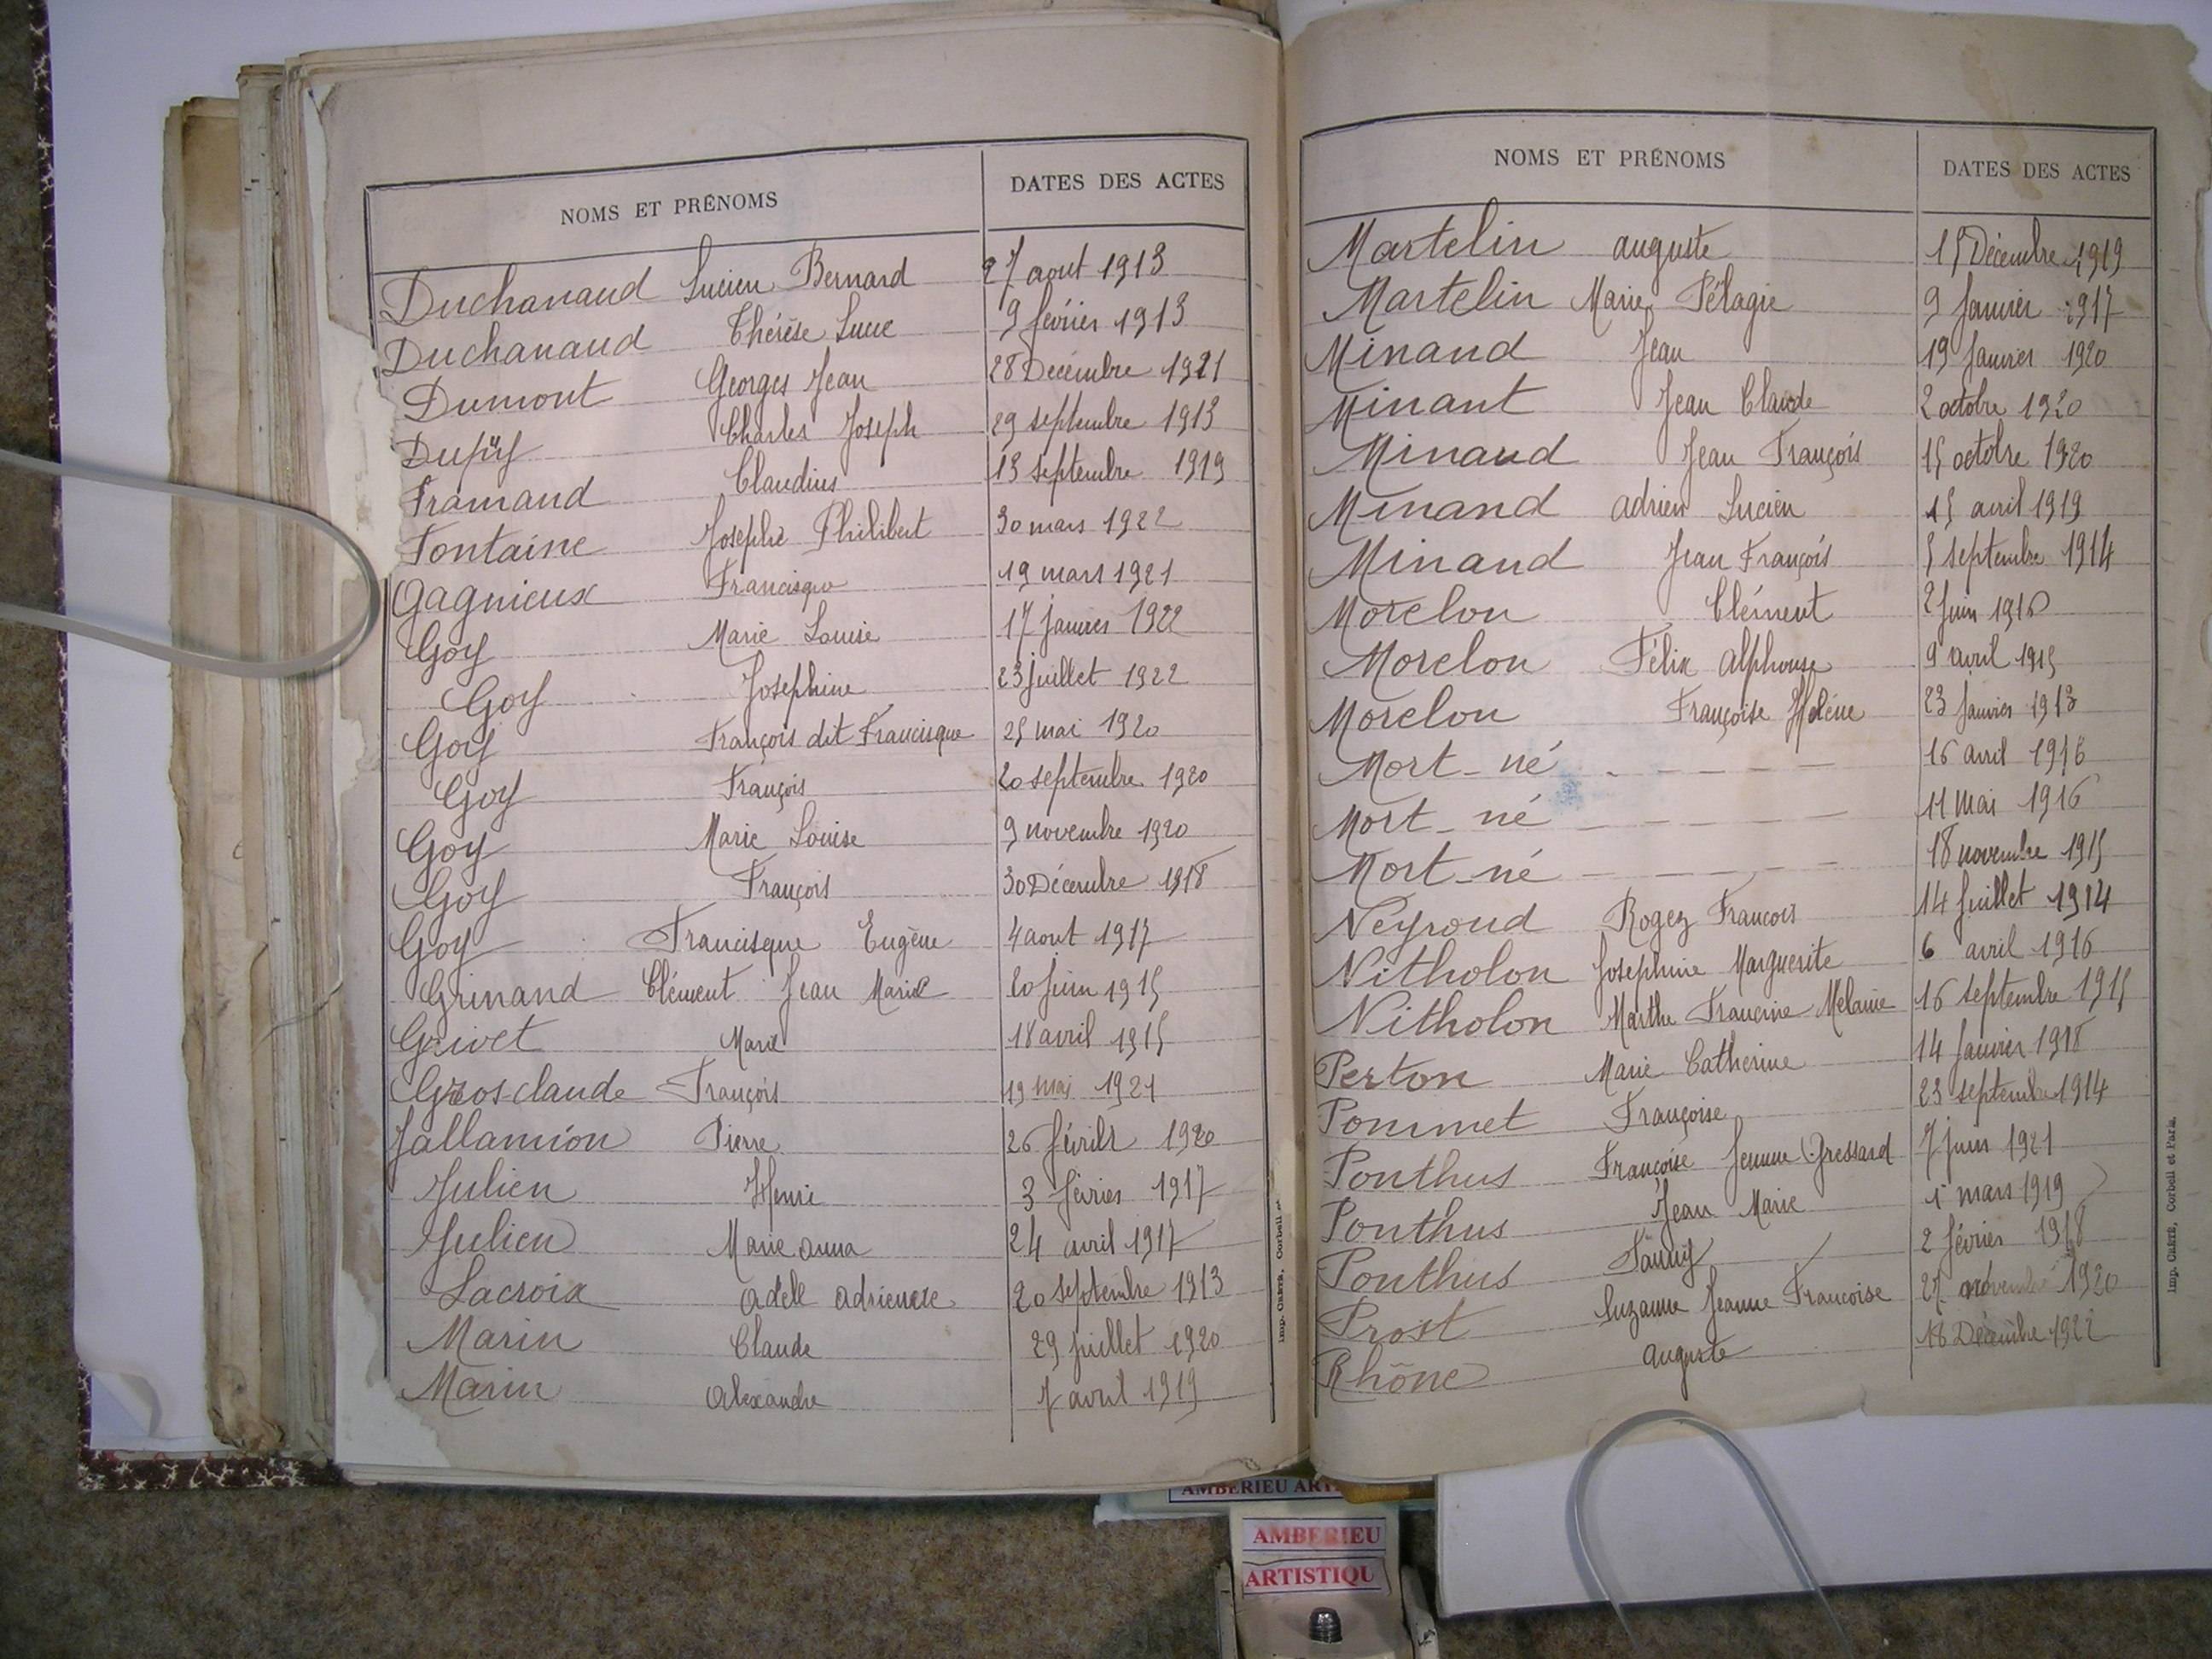 NOMS ET PRÉNOMS DATES DES ACTES
Duchanaud Lucien Bernard 27 aout 1913
Duchanaud Thérèse Lucie 9 février 1913
Dumont Georges Jean 28 Décembre 1921
Dupuy Charles Joseph 29 septembre 1913
Framand Claudius 13 septembre 1919
Fontaine Josephe Philibert 30 mars 1922
Gagnieux Francisque 19 mars 1921
Goy Marie Louise 17 janvier 1922
Goy Josephine 23 juillet 1922
Goy François dit Francisque 25 mai 1920
Goy François 20 septembre 1920
Goy Marie Louise 9 novembre 1920
Goy François 30 Décembre 1918
Goy Francisque Eugène 4 aout 1917
Grinand Clément Jean Marie 20 Juin 1915
Grivet Marie 18 avril 1915
Grosclaude François 19 mai 1921
Jallamion Pierre 26 février 1920
Julien Henri 3 février 1917
Julien Marie anna 24 avril 1917
Lacroix Adèle Adrienne 20 septembre 1913
Marin Claude 29 juillet 1920
Marin Alexandre 7 avril 1919
NOMS ET PRÉNOMS DATES DES ACTES
Martelin auguste 15 Décembre 1919
Martelin Marie Pélagie 9 Janvier 1917
Minaud Jean 19 Janvier 1920
Minant Jean Claude 2 octobre 1920
Minaud Jean François 15 octobre 1920
Minand adrien Lucien 15 avril 1919
Minaud Jean François 5 septembre 1914
Morelon Clément 2 Juin 1916
Morelon Félix Alphonse 9 avril 1915
Morelon Françoise Hélène 23 Janvier 1913
Mort-né - - - - - 16 avril 1916
Mort-né - - - - - 11 Mai 1916
Mort-né - - - - - 18 novembre 1915
Neyroud Roger François 14 Juillet 1914
Nitholon Josephine Marguerite 6 avril 1916
Nitholon Marthe Francine Mélanie 16 septembre 1915
Perton Marie Catherine 14 Janvier 1918
Pommet Françoise 23 septembre 1914
Ponthus Françoise femme Gressard 7 juin 1921
Ponthus Jean Marie 1 mars 1919
Ponthus Fanny 2 février 1918
Prost Suzanne Jeanne Françoise 27 novembre 1920
Rhône Auguste 18 Décembre 1922
Imp. CRÉTÉ, Corbeil et
Imp. CRÉTÉ, Corbeil et Paris.
AMBERIEU ARTI
AMBERIEU
ARTISTIQU